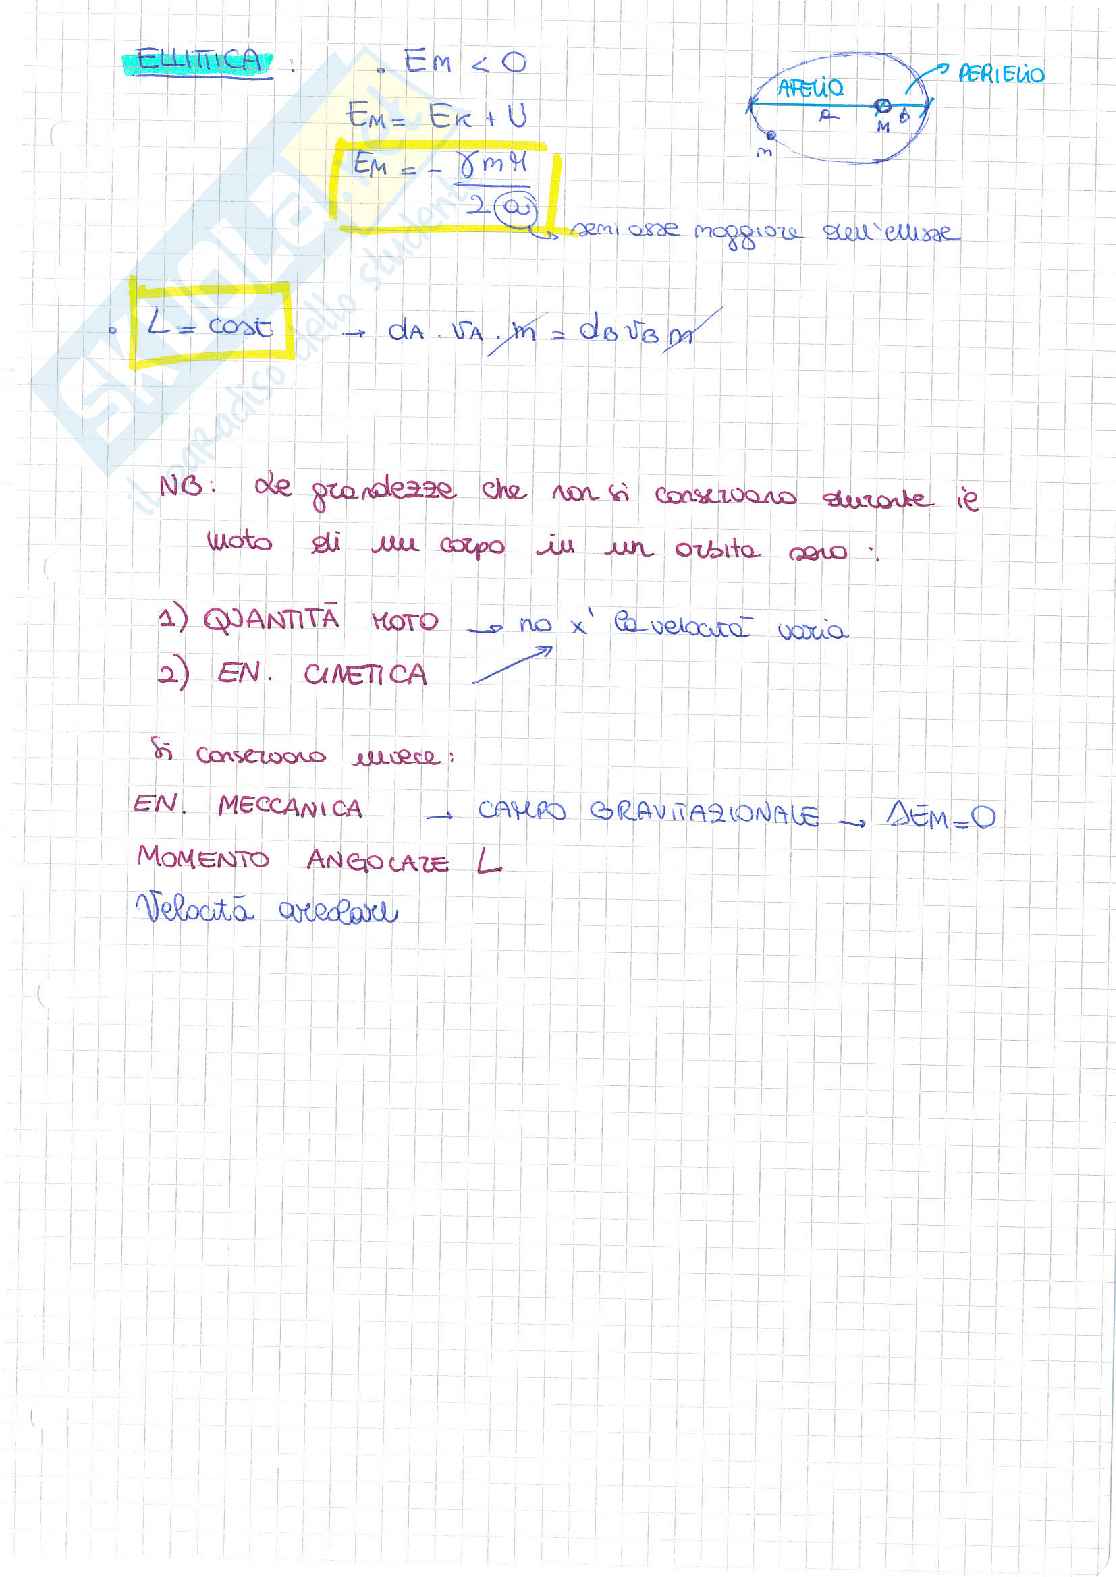 ELLITTICA : • EM < 0
AFELIO
PERIELIO
a
M
b
m
EM = EK + U
EM = - γmM / 2a
semiasse maggiore dell'ellisse
• L = cost → dA · vA · m = dB vB m
NB: Le grandezze che non si conservano durante il
moto di un corpo in un orbita sono :
1) QUANTITÀ MOTO → no x' la velocità varia
2) EN. CINETICA
Si conservano invece:
EN. MECCANICA → CAMPO GRAVITAZIONALE → ΔEM=0
MOMENTO ANGOLARE L
Velocità areolare
SKUOLA.net
il paradiso dello studente